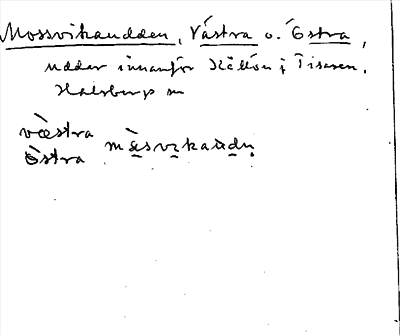 Mossvikaudden, Västra o. Östra,
udder innanför Källön i Tisaren.
Halsbergs sn
västra
östra mɷsvikaudn